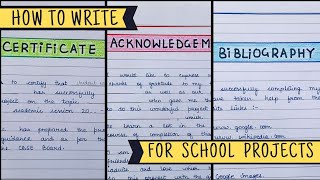 HOW TO WRITE
CERTIFICATE
to certify that
has successfully
project on the topic
academic session 20
has prepared the
guidance and as per the
CBSE Board.
ACKNOWLEDGEM
would like to express
thanks of gratitude to my
as well as our
who gave me the
to this wonderful project
which
learn a lot in the
course of completion of this
BIBLIOGRAPHY
successfully completing my
have taken help from the
links :-
www.google.com
www.wikipedia.com
Google Images.
FOR SCHOOL PROJECTS